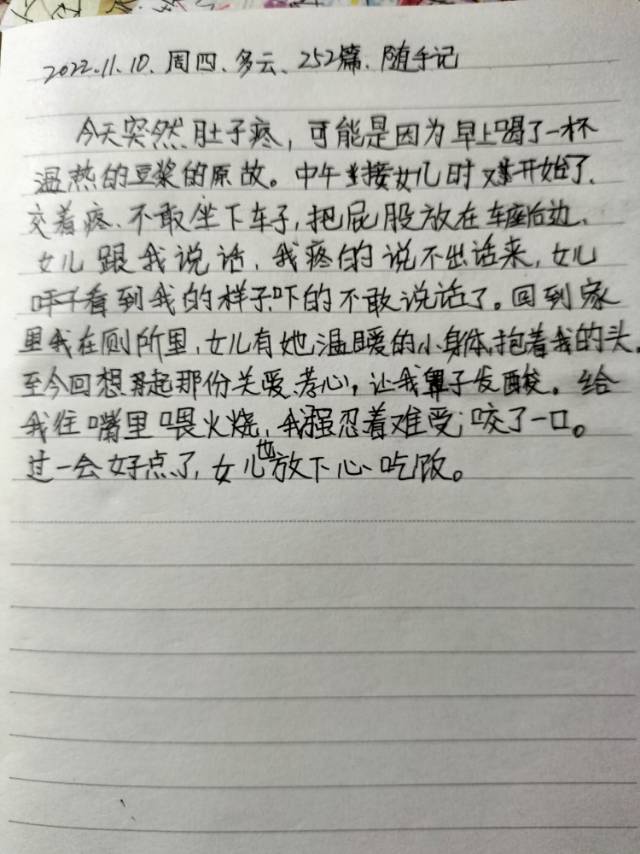 2022.11.10. 周四. 多云. 252篇. 随手记
今天突然肚子疼，可能是因为早上喝了一杯
温热的豆浆的原故。中午接女儿时 开始了.
疼.不敢坐下车子，把屁股放在车座后边.
女儿跟我说话，我疼的说不出话来，女儿
看到我的样子吓的不敢说话了。回到家
里我在厕所里，女儿有她温暖的小身体,抱着我的头.
至今回想起那份关爱.孝心，让我鼻子发酸。给
我往嘴里喂火烧，我强忍着难受；咬了一口。
过一会好点了，女儿也放下心吃饭。